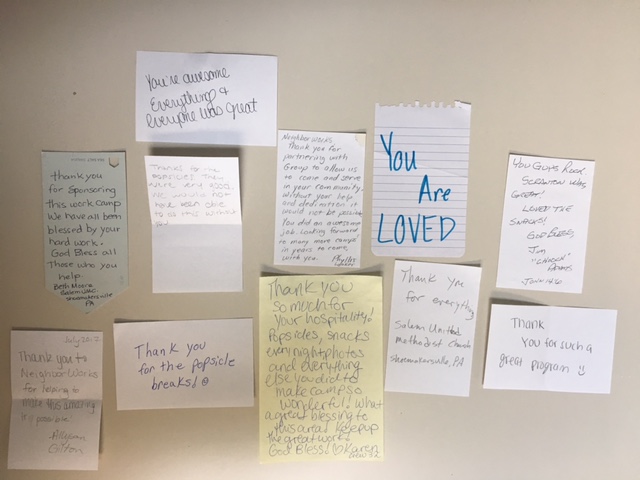 You're awesome
Everything &
everyone was great
thank you
for Sponsoring
this work camp
We have all been
blessed by your
hard work.
God Bless all
Those who you
help
Beth Moore
Salem UMC.
Shoemakersville
PA
Thanks for the
popsicles they
were very good.
We would not
have been able
to do this without
you
NeighborWorks
Thank you for
partnering with
Group to allow us
to come and serve
in your community.
Without your help
and dedication it
would not be possible
You did an awesome
job. Looking forward
to many more camps
in years to come
with you. Phyllis
You
Are
LOVED
YOU GUYS ROCK
SCRANTON WAS
GREAT!
LOVED THE
SNACKS!
GOD BLESS
Jim
July 2017
Thank you to
NeighborWorks
for helping to
make this amazing
trip possible!
Allyson
Gilton
Thank you
for the popsicle
breaks! ☺
Thank you
so much for
your hospitality!
Popsicles, snacks
even night photos
and everything
else you did to
make camp so
wonderful! What
a great blessing to
this area! Keep up
the great work!
God Bless! ♡ Karen
Thank you
for everything
Salem United
Methodist Church
Shoemakersville, PA
Thank
you for such a
great program ☺